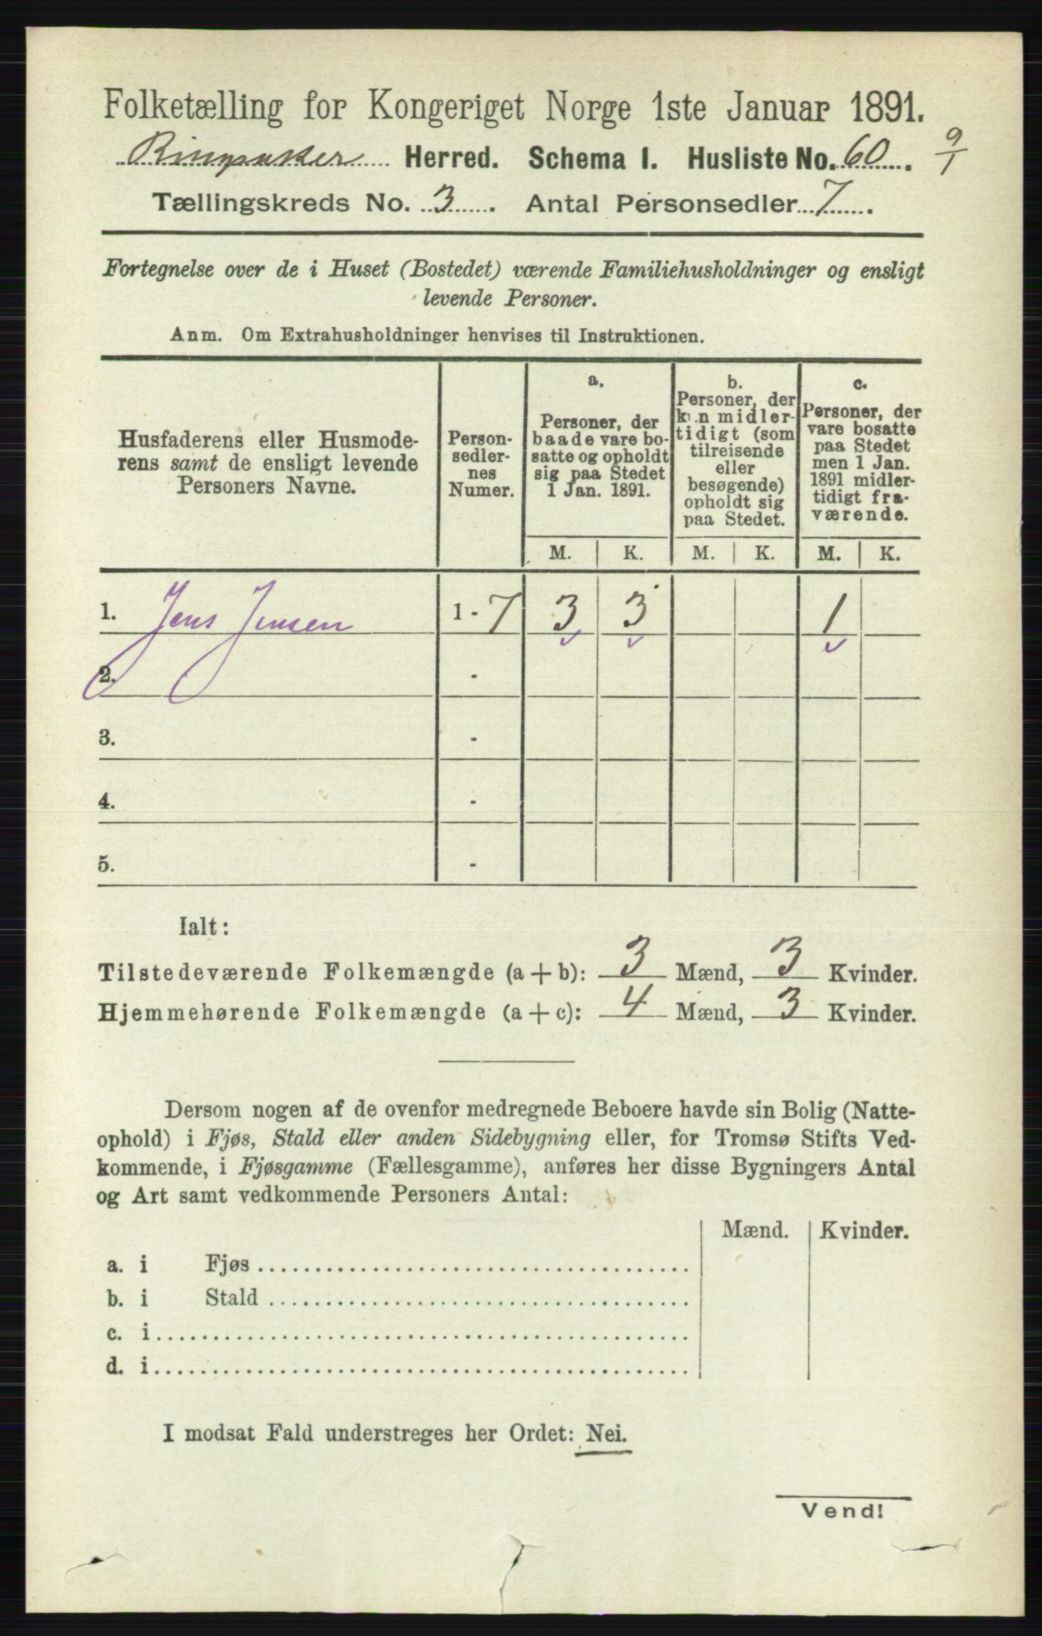 Folketælling for Kongeriget Norge 1ste Januar 1891.
Ringsaker Herred. Schema 1. Husliste No. 60. 9/1
Tællingskreds No. 3. Antal Personsedler 7.
Fortegnelse over de i Huset (Bostedet) værende Familiehusholdninger og ensligt
levende Personer.
Anm. Om Extrahusholdninger henvises til Instruktionen.
Husfaderens eller Husmode-
rens samt de ensligt levende
Personers Navne.
Person-
sedler-
nes
Numer.
a.
Personer, der
baade vare bo-
satte og opholdt
sig paa Stedet
1 Jan. 1891.
b.
Personer, der
kun midler-
tidigt (som
tilreisende
eller
besøgende)
opholdt sig
paa Stedet.
c.
Personer, der
vare bosatte
paa Stedet
men 1 Jan.
1891 midler-
tidigt fra-
værende.
M. K. M. K. M. K.
1. Jens Jensen 1 - 7 3 3 1
2. -
3. -
4. -
5. -
Ialt:
Tilstedeværende Folkemængde (a + b): 3 Mænd, 3 Kvinder.
Hjemmehørende Folkemængde (a + c): 4 Mænd, 3 Kvinder.
Dersom nogen af de ovenfor medregnede Beboere havde sin Bolig (Natte-
ophold) i Fjøs, Stald eller anden Sidebygning eller, for Tromsø Stifts Ved-
kommende, i Fjøsgamme (Fællesgamme), anføres her disse Bygningers Antal
og Art samt vedkommende Personers Antal:
Mænd. Kvinder.
a. i Fjøs
b. i Stald
c. i
d. i
I modsat Fald understreges her Ordet: Nei.
Vend!